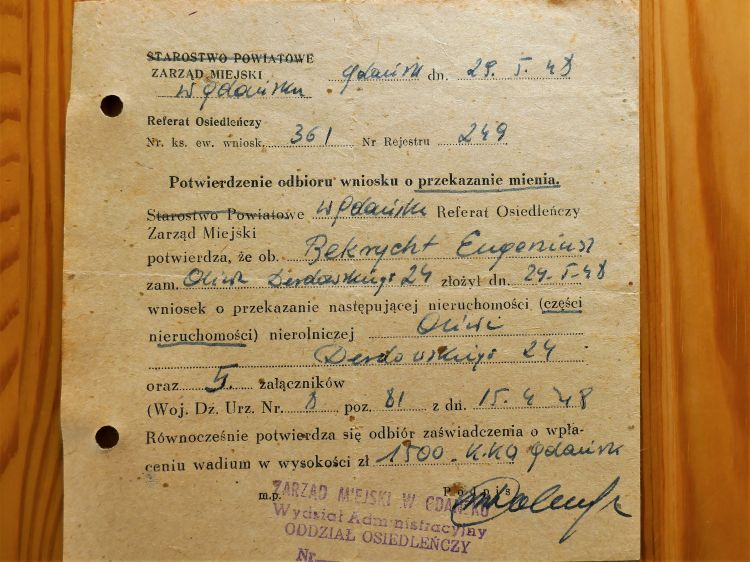 STAROSTWO POWIATOWE
ZARZĄD MIEJSKI Gdańsk dn. 29. 5. 48
w Gdańsku
Referat Osiedleńczy
Nr. ks. ew. wniosk. 361 Nr Rejestru 249
Potwierdzenie odbioru wniosku o przekazanie mienia.
Starostwo Powiatowe w Gdańsku Referat Osiedleńczy
Zarząd Miejski
potwierdza, że ob. Rekrycht Eugeniusz
zam. Oliwa Derdowskiego 24 złożył dn. 24-5-48
wniosek o przekazanie następującej nieruchomości (części
nieruchomości) nierolniczej Oliwa
Derdowskiego 24
oraz 5. załączników
(Woj. Dź. Urz. Nr. 8 poz. 81 z dń. 15. 4 48
Równocześnie potwierdza się odbiór zaświadczenia o wpła-
ceniu wadium w wysokości zł 1500 - K.K.O Gdańsk
m.p. Podpis
ZARZĄD MIEJSKI W GDAŃSKU
Wydział Administracyjny
ODDZIAŁ OSIEDLEŃCZY
Nr.